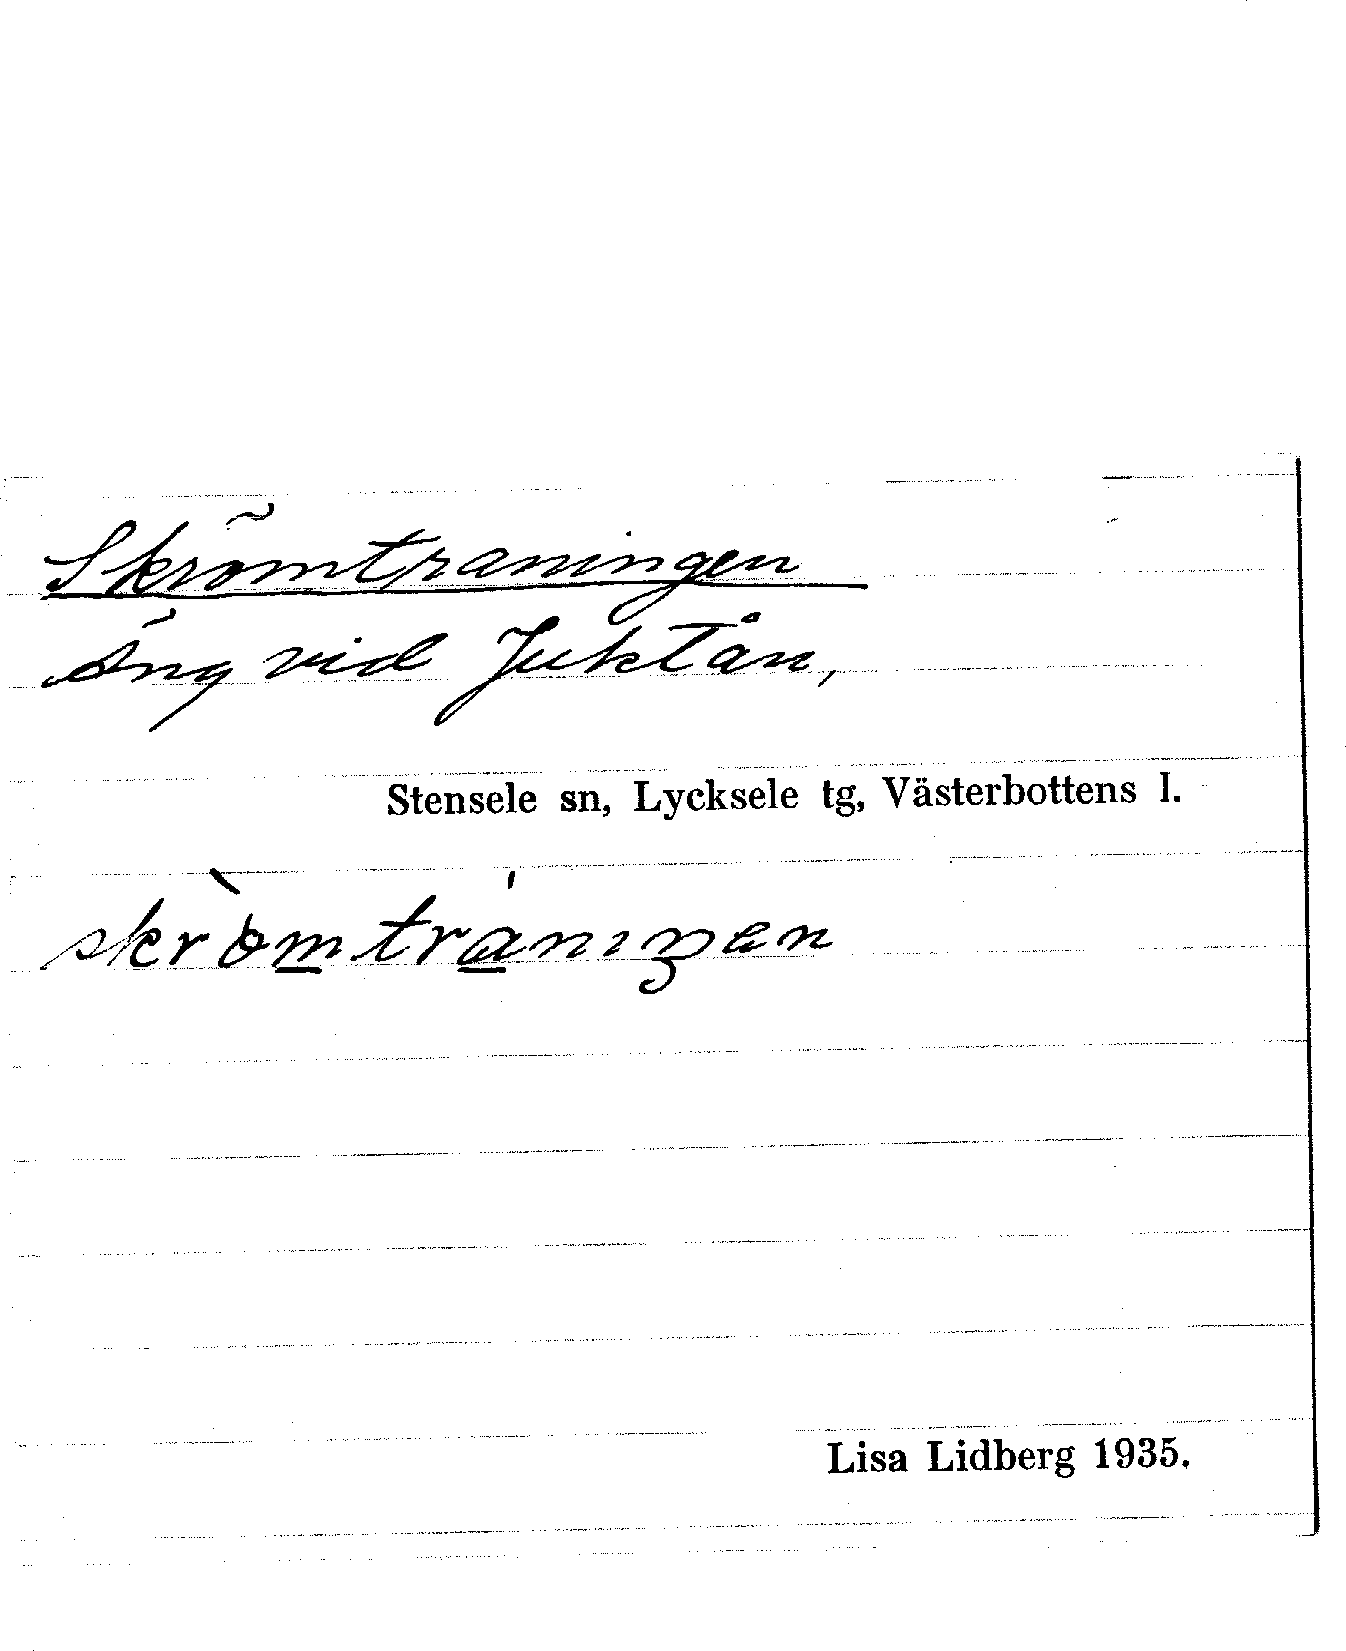 Skrömtraningen
Äng vid Juktån,
Stensele sn, Lycksele tg, Västerbottens l.
Lisa Lidberg 1935.